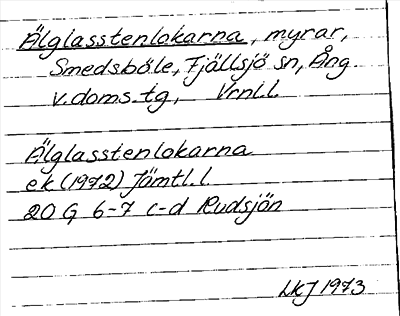 Älglasstenlokarna, myrar,
Smedsböle, Fjällsjö sn, Ång.
v.doms.tg, Vrnl.l.
Älglasstenlokarna
ek (1972) Jämtl.l.
20 G 6-7 c-d Rudsjön
LKJ 1973